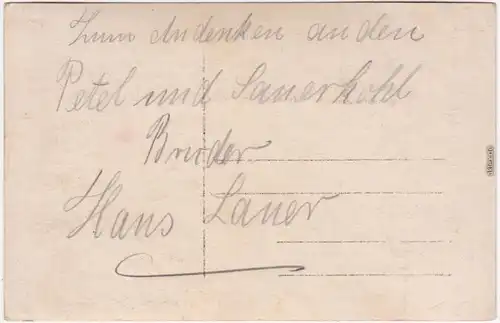 Zum Andenken an den
Petel und Sauerkohl
Bruder
Hans Lauer